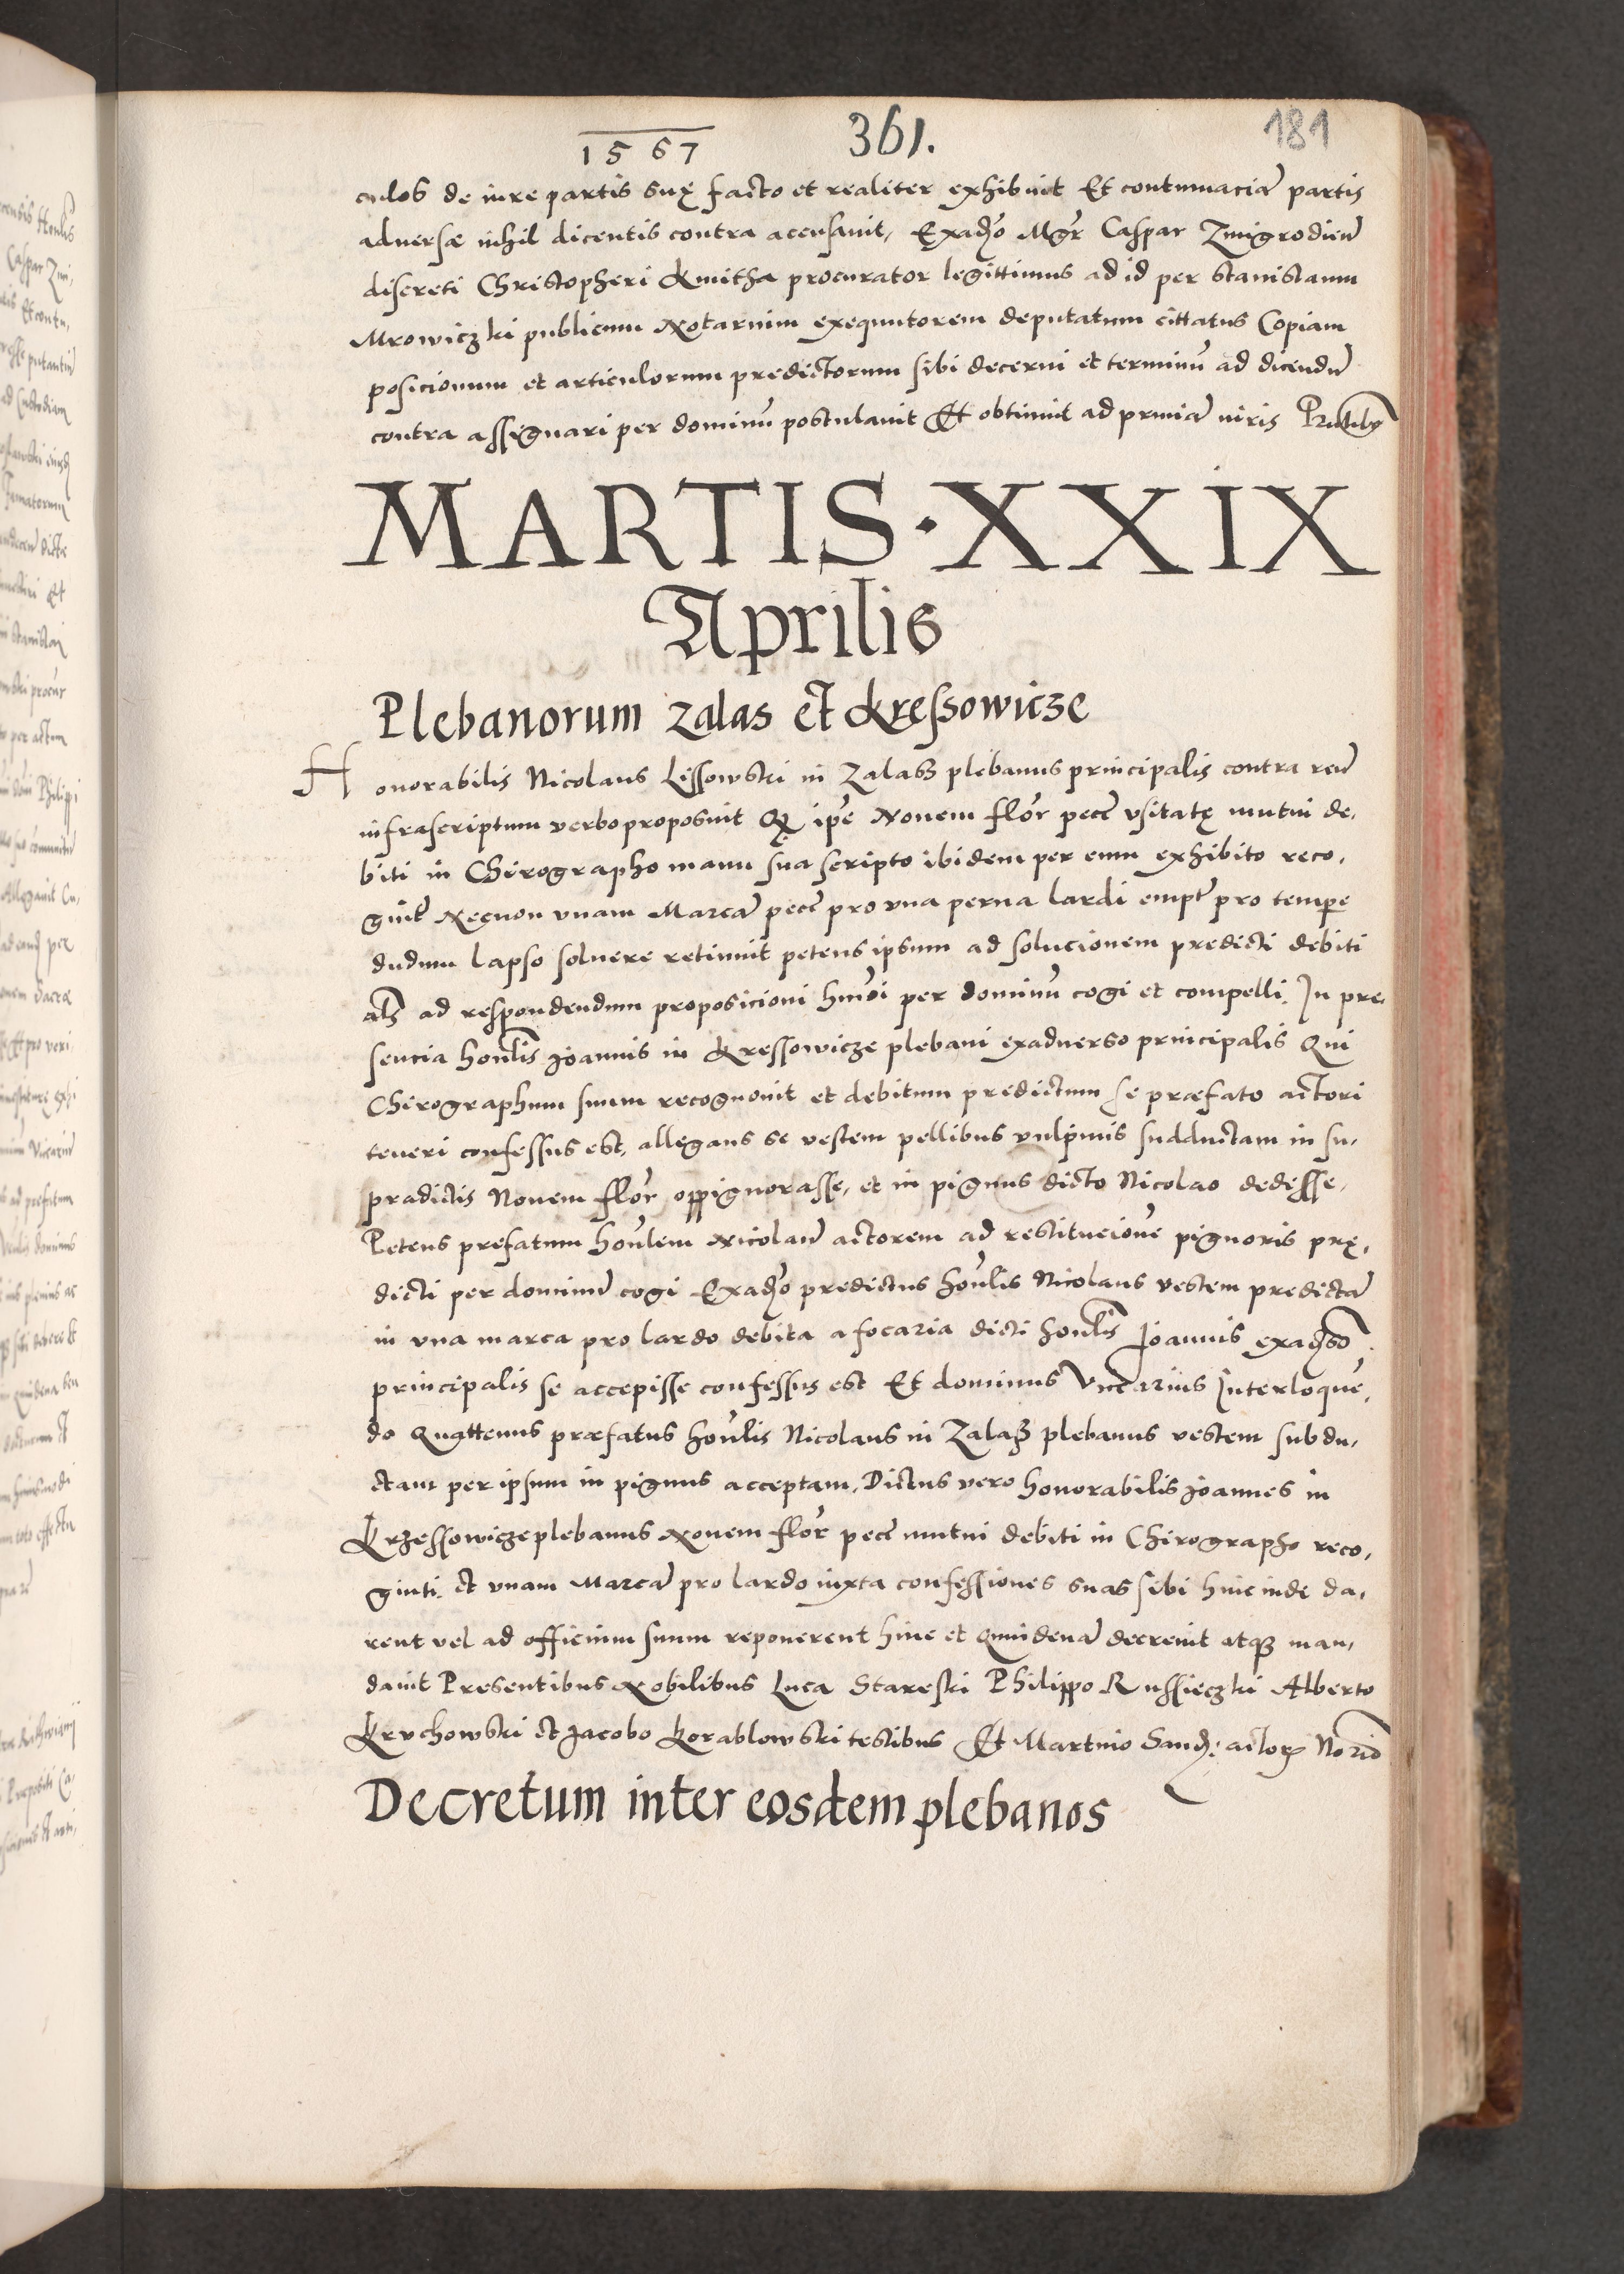 1567 361. 181
culos de iure partis suę facto et realiter exhibuit Et contumaciā partis
adversæ nihil dicentis contra accusavit, Exadṽo Mgr̃ Caspar Zmigrodien̄
discreti Christopheri Kmitha procurator legittimus ad id per Stanislaum
Mrowiczki publicum Notarium exequutorem deputatum cittatus Copiam
posicionum et articulorum predictorum sibi decerni et terminū ad dicendū
contra assignari per dominū postulavit Et obtinuit ad primā iuris
MARTIS · XXIX
Aprilis
Plebanorum Zalas et Kressowicze
Honorabilis Nicolaus Lissowski in Zalass plebanus principalis contra reū
infrascriptum verbo proposuit Qꝫ ip̃e Novem flor̃ pecc̃ usitatę mutui de,
biti in Chirographo manu sua scripto ibidem per eum exhibito reco,
gnit̃ Necnon unam Marcā pecc̃ pro una perna lardi empt̃ pro tempe
dudum lapso solvere retinuit petens ipsum ad solucionem predicti debiti
als̃ ad respondendum proposicioni hm̃oi per dominū cogi et compelli. In pre,
sencia hon̄lis Joannis in Kressowicze plebani exadverso principalis Qui
Chirographum suum recognovit et debitum predictum se præfato actori
teneri confessus est, allegans se vestem pellibus vulpinis sudductam in su,
pradictis Novem flor̃ oppignorasse, et in pignus dicto Nicolao dedesse,
Petens prefatum hon̄lem Nicolaū actorem ad restitucionē pignoris prę,
dicti per dominū cogi Exadṽo predictus hon̄lis Nicolaus vestem predictā
in una marca pro lardo debita a focaria dicti hon̄lis Joannis exadṽso
principalis se accepisse confessus est Et dominus Vicarius Interloquē,
do Quattenus præfatus hon̄lis Nicolaus in Zalass plebanus vestem subdu,
ctam per ipsum in pignus acceptam, Dictus vero honorabilis Joannes in
Krzessowicze plebanus Novem flor̃ pecc̃ mutui debiti in Chirographo reco,
gniti. et unam Marcā pro lardo iuxta confessiones suas sibi hincinde da,
rent vel ad officium suum reponerent hinc et Quindenā decrevit atqꝫ man,
davit Presentibus Nobilibus Luca Stareski Philippo Russieczki Alberto
Kruchowski et Jacobo Korablowski testibus Et Martino actorꝫ Norio
Decretum inter eosdem plebanos